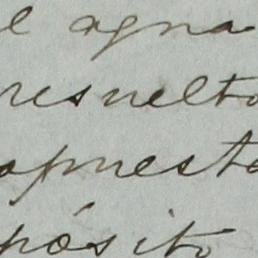 l agua
resuelto
apuesta
pósito